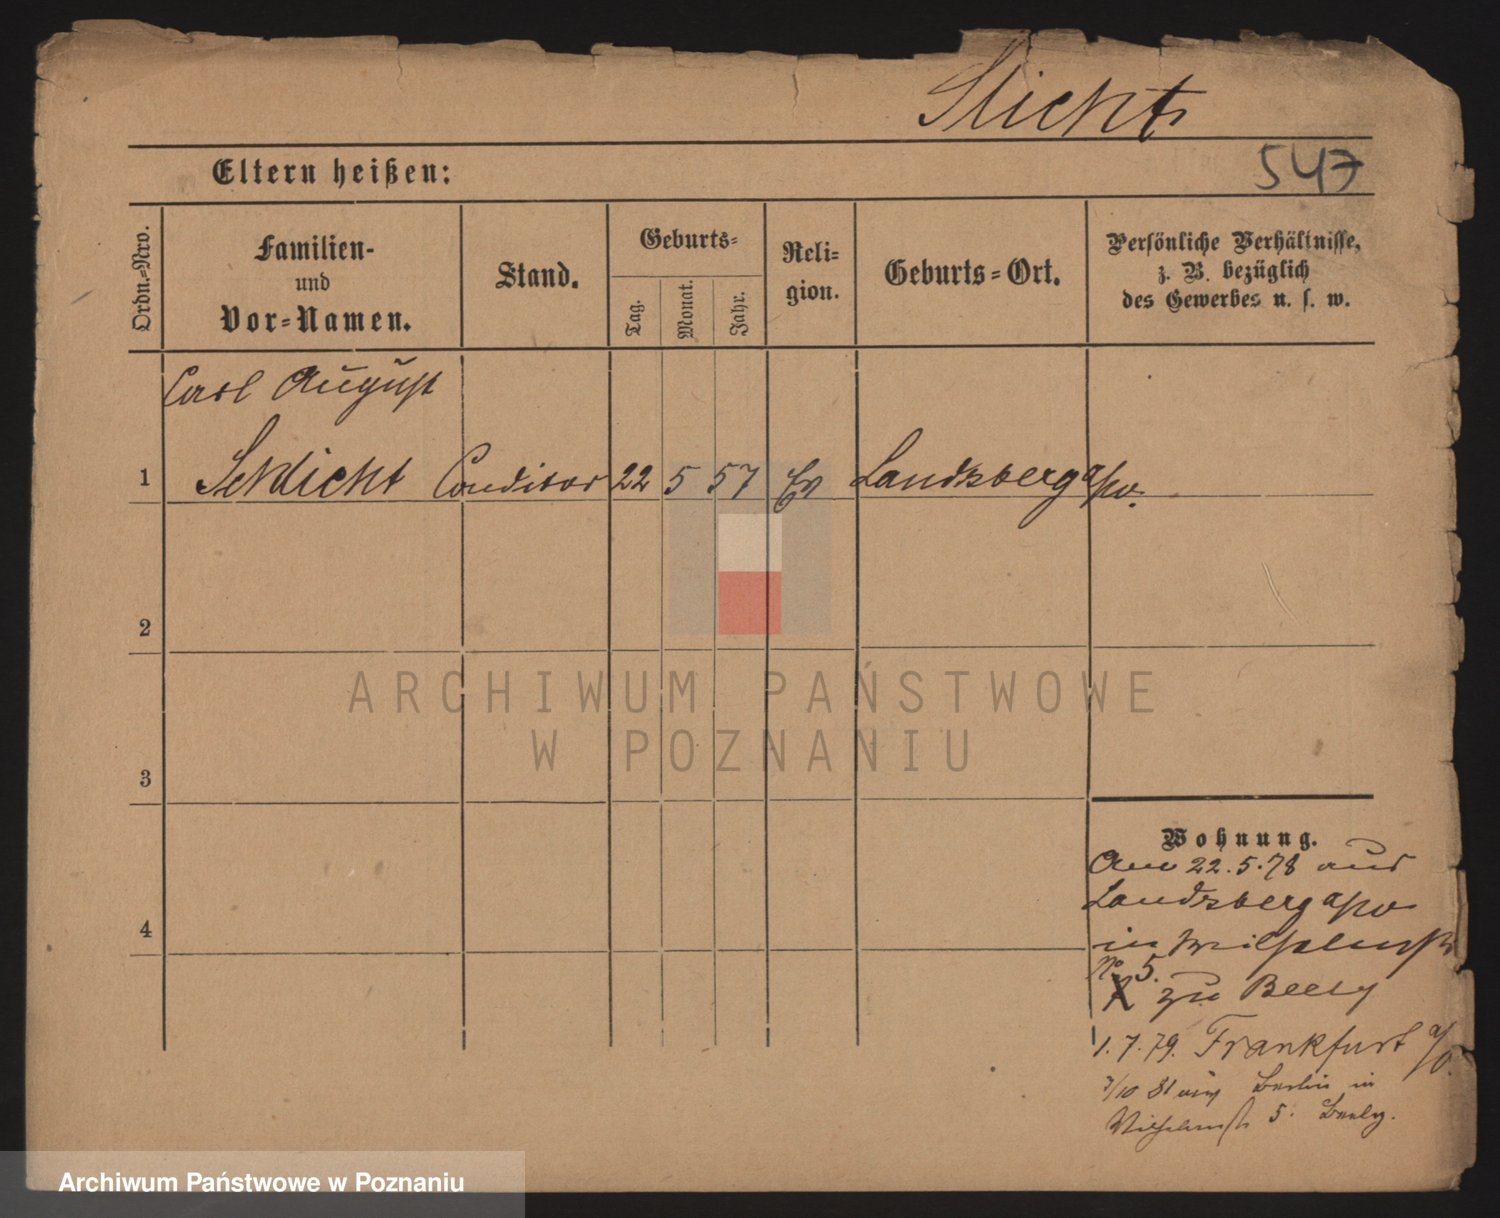 Slicht
547
Eltern heißen:
Ordn.=Nro.
Familien-
und
Vor=Namen.
Stand.
Geburts=
Tag.
Monat.
Jahr.
Reli=
gion.
Geburts=Ort.
Persönliche Verhältnisse,
z. B. bezüglich
des Gewerbes u. s. w.
Carl August
1 Schlicht Conditor 22 5 57 Ev Landsberg a/W.
2
3
4
ARCHIWUM PAŃSTWOWE
W POZNANIU
Wohnung.
Am 22.5.78 aus
Landsberg a/W
in Wilhelmstr
No 5.
zu Beely
1.7.79. Frankfurt a/O.
3/10 81 aus Berlin in
Wilhelmstr 5. Beely.
Archiwum Państwowe w Poznaniu